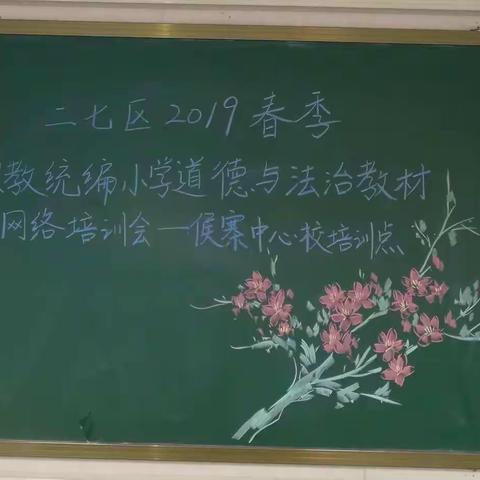 二七区2019春季
教统编小学道德与法治教材
网络培训会一侯寨中心校培训点